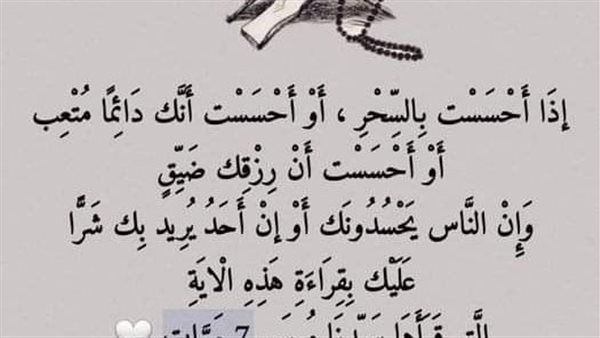 إِذَا أَحْسَسْت بِالسِّحْرِ ، أَوْ أَحْسَسْت أَنَّك دَائِمًا مُتْعِب
أَوْ أَحْسَسْت أَنْ رِزْقِك ضَيِّقٍ
وَإِنْ النَّاس يَحْسُدُونَك أَوْ إنْ أَحَدُ يُرِيد بِك شَرًّا
عَلَيْك بِقِرَاءَةِ هَذِهِ الْآيَةِ
7